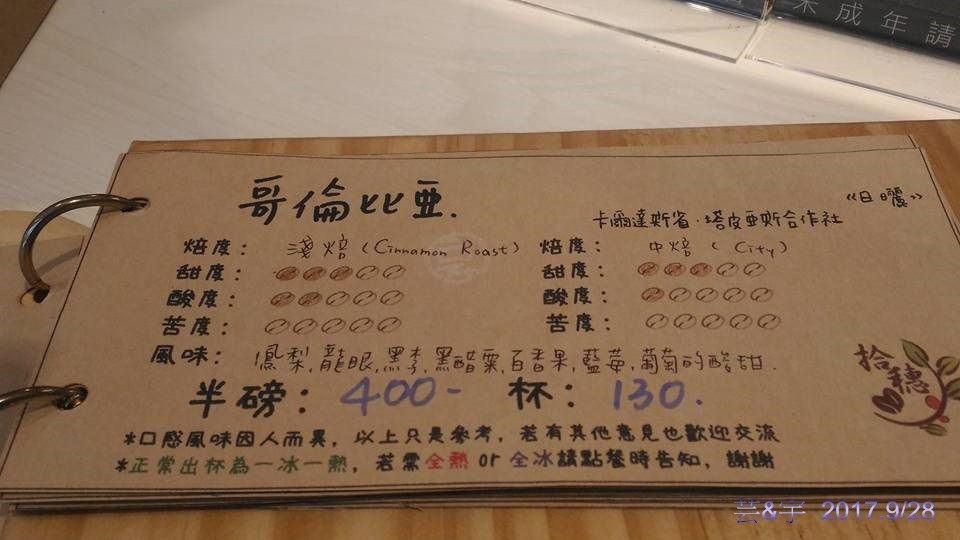 未成年請
哥倫比亞.
《日曬》
卡爾達斯省·塔皮亞斯合作社
焙度： 淺焙 (Cinnamon Roast) 焙度： 中焙 ( City)
甜度： 甜度：
酸度： 酸度：
苦度： 苦度：
風味： 鳳梨,龍眼,黑李,黑醋栗,百香果,藍莓,葡萄的酸甜.
半磅： 400- 杯： 130.
*口感風味因人而異，以上只是參考，若有其他意見也歡迎交流
*正常出杯為一冰一熱，若需全熱 or 全冰請點餐時告知，謝謝
拾穗
芸&宇 2017.9/28